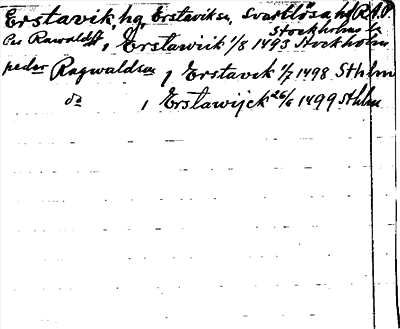 Erstavik, hg, Erstaviks., Svartlösa hd R.A.P.
Stockholms län
Pes Rawaldss, i Erstawiik 1/8 1493 Stockholm
peder Ragwaldsson i Erstavek 1/7 1498 Sthlm
do i Erstawijck 26/6 1499 Sthlm